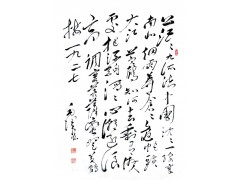 茫茫九派流中國沉沉一線穿
南北烟雨莽苍苍龟蛇锁
大江黄鶴知何去剩有遊人
處把酒酹滔滔心潮逐浪
高調寄菩薩蠻登黄鶴
楼一九二七